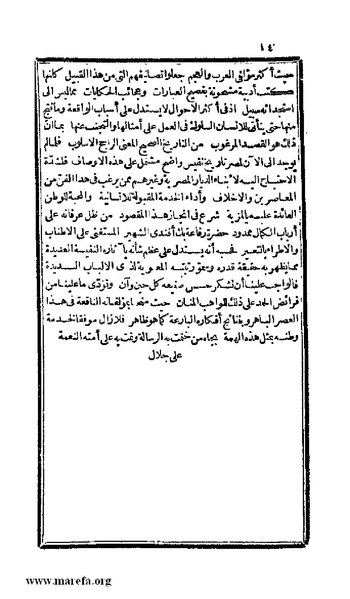 ١٤
حيث أكثر مؤلفي العرب والعجم جعلوا تصانيفهم التي من هذا القبيل كأنها
كتب أدبية مشحونة بفصيح العبارات وعجائب الحكايات مما ليس الى
استحداثه سبيل اذ في أكثر الاحوال لا يستدل على أسباب الواقعة وما نتج
منها حتى يتأتى للانسان السلوك في العمل على أمثالها والتجنب عنها بما ان
ذلك هو القصد المرغوب من التاريخ الصحيح المعنى الراجح الاسلوب فلما لم
يوجد الى الآن لمصر تاريخ نفيس واضح مشتمل على هذه الاوصاف فلشدة
الاحتياج اليه لابناء الديار المصرية وغيرهم ممن يرغب في هذا الفن من
المعاصرين والاخلاف وأداء الخدمة المقبولة للانسانية والمحبة للوطن
العائدة عليه بالمزية شرع في انجاز هذا المقصود من نقل عرفانه على
أرباب الكمال ممدود حضرة رفاعة بك أفندى الشهير المستغنى على الاطناب
والاطراء بالتعبير فحسبه أنه يستدل على عظم شأنه بآثاره النفيسة العديدة
مما يظهر به حقيقة قدره وسمو رتبته المعنوية لذى الالباب السديدة
فالواجب علينا أن نشكر حسن صنيعه كل حين وآن ونؤدى ما علينا من
فرائض الحمد على ذلك للواهب المنان حيث متعنا بمؤلفاته النافعة في هذا
العصر الباهر وبنتائج أفكاره البارعة كما هو ظاهر فلا زال موفقا لخدمة
وطنه بمثل هذه الهمة بجاه من ختمت به الرسالة وتمت به على أمته النعمة
على جلال
www.marefa.org